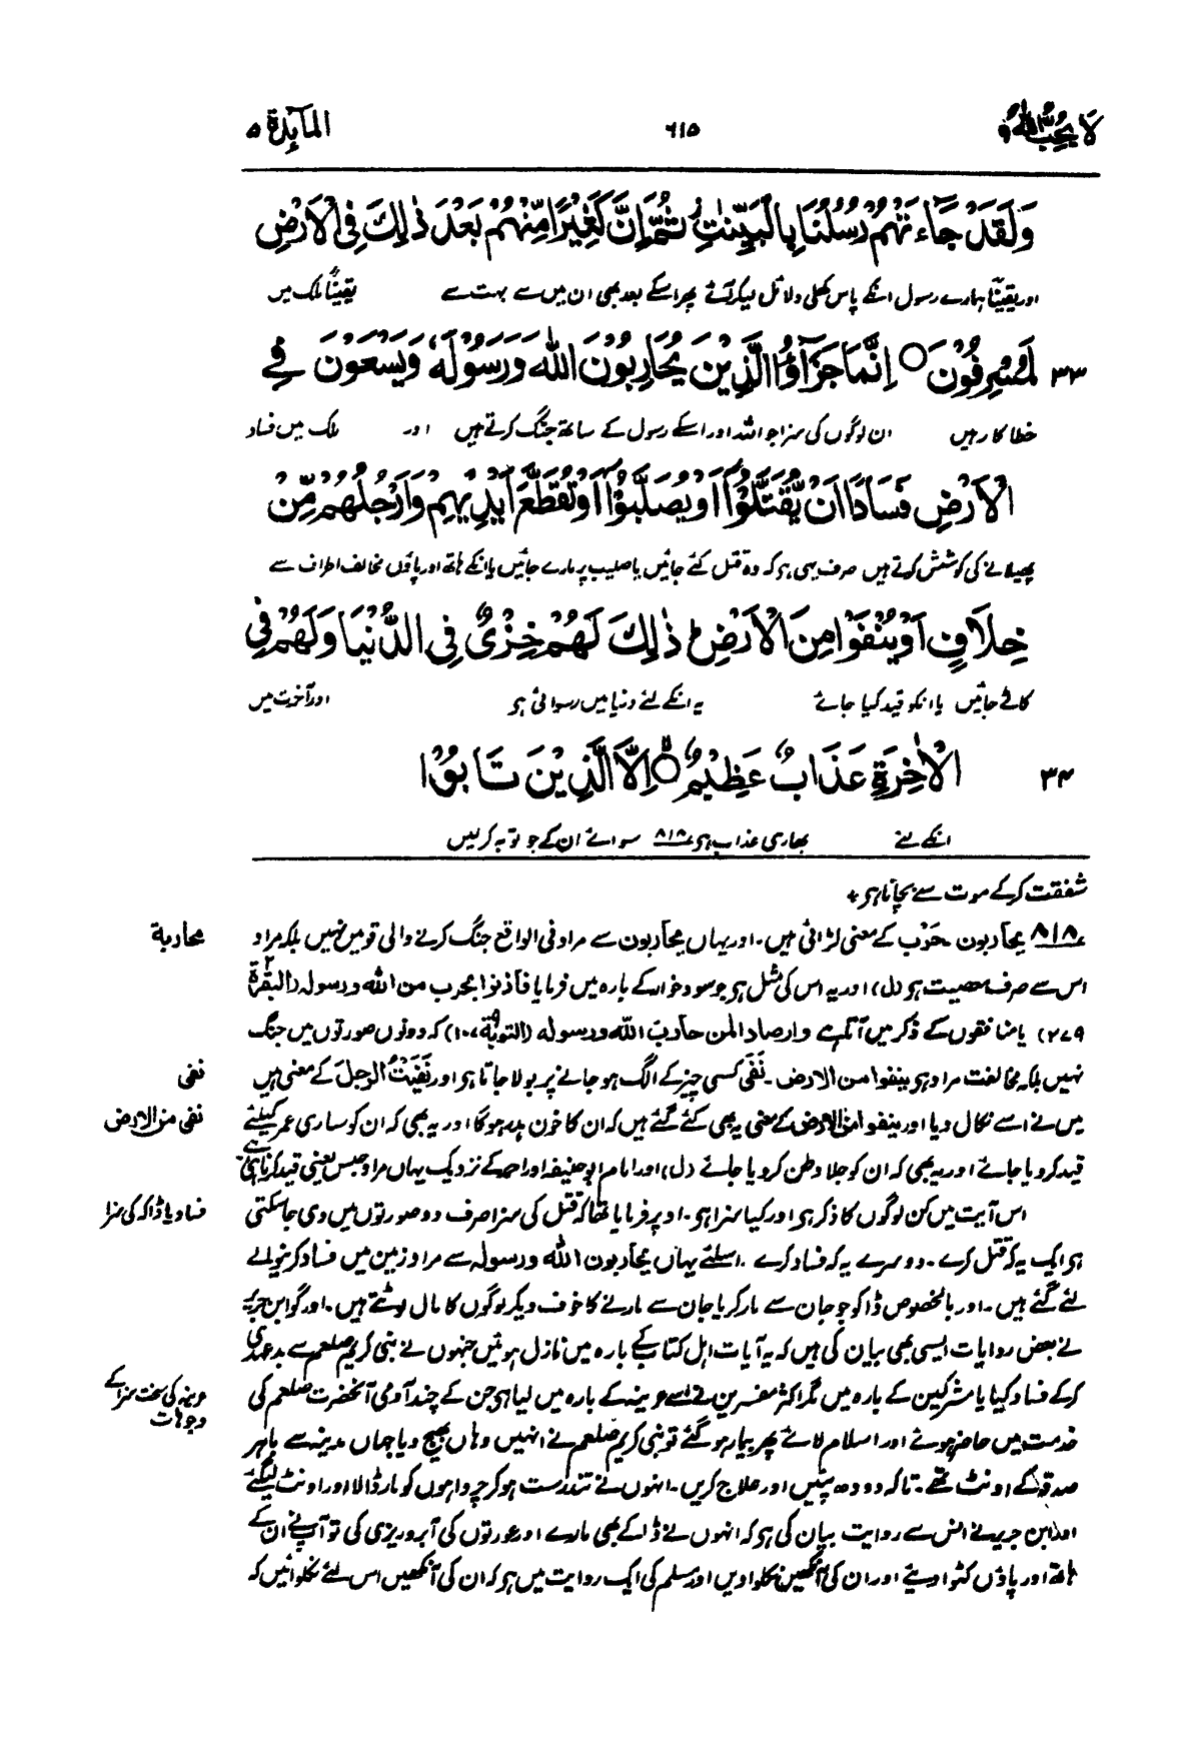 لَا يُحِبُّ اللّٰهُ ٦
٦١٥
المَآئِدَة ٥
وَلَقَدْ جَآءَتْهُمْ رُسُلُنَا بِالْبَيِّنٰتِ ثُمَّ إِنَّ كَثِيْرًا مِّنْهُمْ بَعْدَ ذٰلِكَ فِي الْاَرْضِ
اور یقینًا ہمارے رسول انکے پاس کھلی دلائل لیکر آئے پھر اسکے بعد بھی ان میں سے بہت سے یقینًا ملک میں
٣٣ لَمُسْرِفُوْنَ ○ اِنَّمَا جَزٰٓؤُا الَّذِيْنَ يُحَارِبُوْنَ اللّٰهَ وَرَسُوْلَهٗ وَيَسْعَوْنَ فِي
خطا کار ہیں ان لوگوں کی سزا جو اللہ اور اسکے رسول کے ساتھ جنگ کرتے ہیں اور ملک میں فساد
الْاَرْضِ فَسَادًا اَنْ يُّقَتَّلُوْٓا اَوْ يُصَلَّبُوْٓا اَوْ تُقَطَّعَ اَيْدِيْهِمْ وَاَرْجُلُهُمْ مِّنْ
پھیلانے کی کوشش کرتے ہیں صرف یہی ہو کہ وہ قتل کئے جائیں یا صلیب پر مارے جائیں یا انکے ہاتھ اور پاؤں مخالف اطراف سے
خِلَافٍ اَوْ يُنْفَوْا مِنَ الْاَرْضِ ذٰلِكَ لَهُمْ خِزْيٌ فِي الدُّنْيَا وَلَهُمْ فِي
کاٹے جائیں یا انکو قید کیا جائے یہ انکے لئے دنیا میں رسوائی ہو اور آخرت میں
٣٤ الْاٰخِرَةِ عَذَابٌ عَظِيْمٌ ○ اِلَّا الَّذِيْنَ تَابُوْا
انکے لئے بھاری عذاب ہو ٨١٨ سوائے ان کے جو توبہ کرلیں
شفقت کرکے موت سے بچاتا ہو +
٨١٨ یحاربون۔ حَرْب کے معنی لڑائی ہیں۔ اور یہاں یحاربون سے مراد فی الواقع جنگ کرنے والی قومیں نہیں بلکہ مراد
محاربة
اس سے صرف معصیت ہو (ل) اور یہ اس کی مثل ہو جو سود خوار کے بارہ میں فرمایا فأذنوا بحرب من اللہ ورسولہ (البقرة
٢٧٩) یا منافقوں کے ذکر میں آتا ہے وارصادا لمن حارب اللہ ورسولہ (التوبة ١٠٧) کہ دونوں صورتوں میں جنگ
نہیں بلکہ مخالفت مراد ہو ینفوا من الارض۔ نَفَی کسی چیز کے الگ ہو جانے پر بولا جاتا ہو اور نَفَيْتُ الرجلَ کے معنی ہیں
نفی
میں نے اسے نکال دیا اور ینفوا من الارض کے معنی یہ بھی کئے گئے ہیں کہ ان کا خون ہدر ہوگا اور یہ بھی کہ ان کو ساری عمر کیلئے
نفی من الارض
قید کر دیا جائے اور یہ بھی کہ ان کو جلا وطن کر دیا جائے (ل) اور امام ابو حنیفہ اور احمد کے نزدیک یہاں مراد حبس یعنی قید کرنا ہی ہے
اس آیت میں کن لوگوں کا ذکر ہو اور کیا سزا ہو۔ اوپر فرمایا تھا کہ قتل کی سزا صرف دو صورتوں میں دی جا سکتی
فساد یا ڈاکہ کی سزا
ہو ایک یہ کہ قتل کرے۔ دوسرے یہ کہ فساد کرے۔ اسلئے یہاں یحاربون اللہ ورسولہ سے مراد زمین میں فساد کرنیوالے
لئے گئے ہیں۔ اور بالخصوص ڈاکو جو جان سے مار کر یا جان سے مارنے کا خوف دیکر لوگوں کا مال لوٹتے ہیں۔ اور گو ابن جریر
نے بعض روایات ایسی بھی بیان کی ہیں کہ یہ آیات اہل کتاب کے بارہ میں نازل ہوئیں جنہوں نے نبی کریم صلعم سے بدعہدی
کرکے فساد کیا یا مشرکین کے بارہ میں مگر اکثر مفسرین نے اسے عرینہ کے بارہ میں لیا ہو جن کے چند آدمی آنحضرت صلعم کی
عرینہ کی سخت سزا کے
وجوہات
خدمت میں حاضر ہوئے اور اسلام لائے پھر بیمار ہو گئے تو نبی کریم صلعم نے انہیں وہاں بھیج دیا جہاں مدینہ سے باہر
صدقہ کے اونٹ تھے۔ تاکہ دودھ پئیں اور علاج کریں۔ انہوں نے تندرست ہو کر چرواہوں کو مار ڈالا اور اونٹ لیگئے
اور ابن جریر نے انس سے روایت بیان کی ہو کہ انہوں نے ڈاکے بھی مارے اور عورتوں کی آبروریزی کی تو آپ نے ان کے
ہاتھ اور پاؤں کٹوا دیئے اور ان کی آنکھیں نکلوا دیں اور مسلم کی ایک روایت میں ہو کہ ان کی آنکھیں اس لئے نکلوائیں کہ